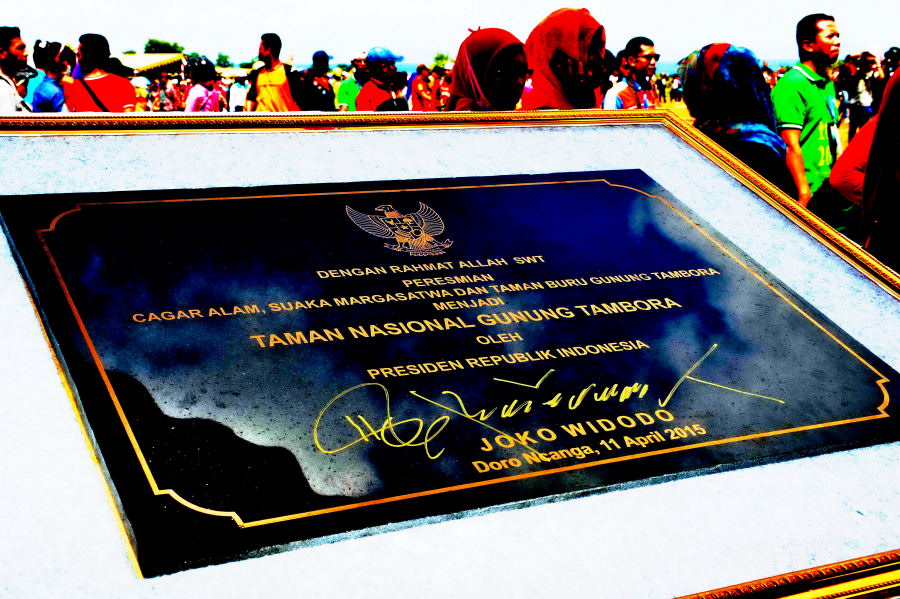 DENGAN RAHMAT ALLAH SWT
PERESMIAN
CAGAR ALAM, SUAKA MARGASATWA DAN TAMAN BURU GUNUNG TAMBORA
MENJADI
TAMAN NASIONAL GUNUNG TAMBORA
OLEH
PRESIDEN REPUBLIK INDONESIA
JOKO WIDODO
Doro Ncanga, 11 April 2015